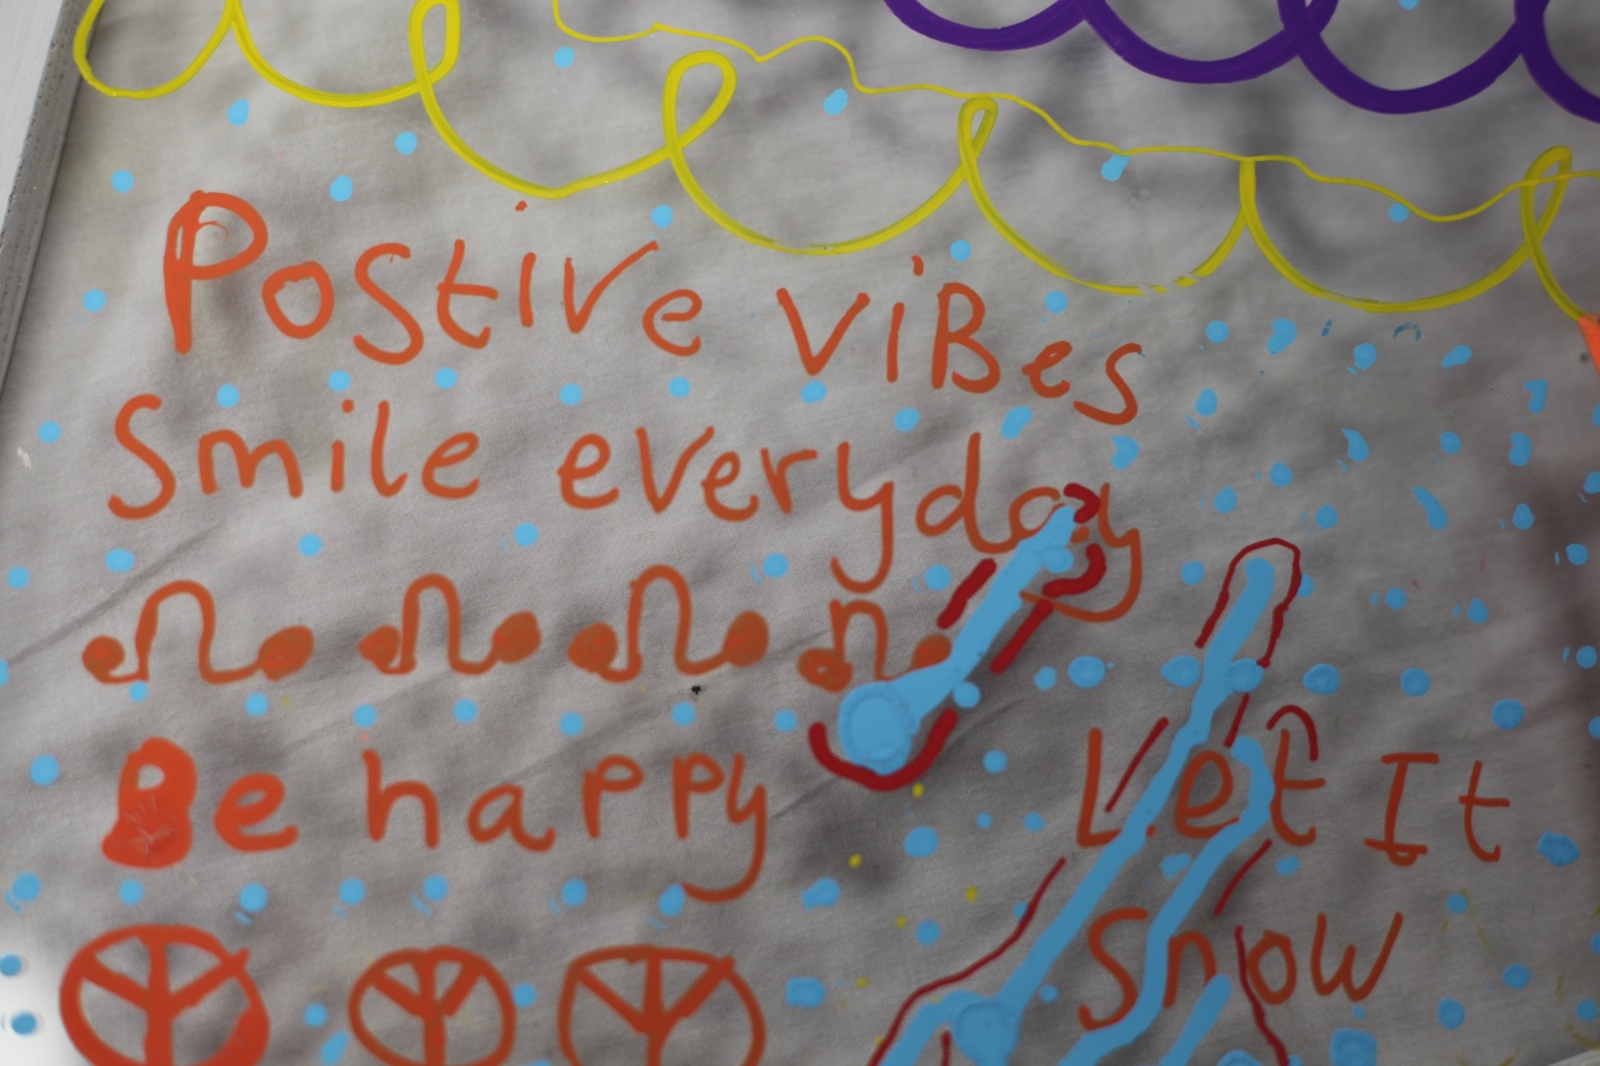 Postive ViBes
Smile everyday
Be happy
Let It
Snow